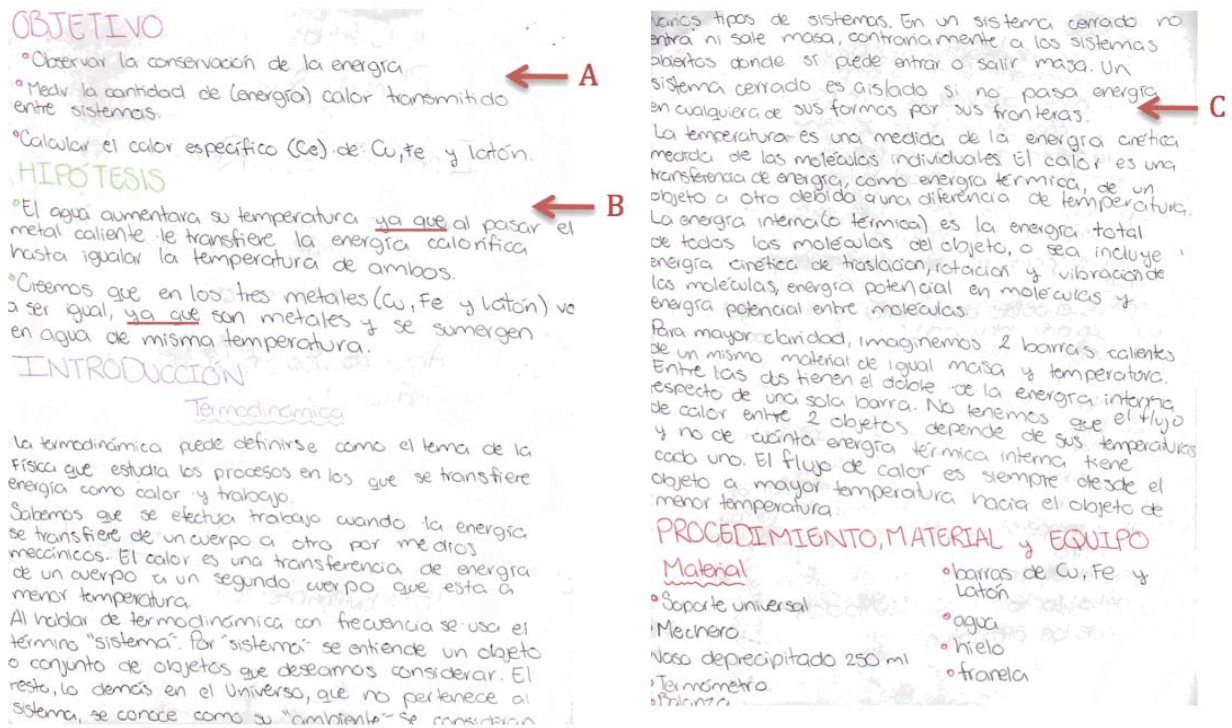 OBJETIVO
°Observar la conservación de la energía
°Medir la cantidad de (energía) calor transmitido
entre sistemas.
°Calcular el calor específico (Ce) de Cu, Fe y latón.
HIPÓTESIS
°El agua aumentara su temperatura ya que al pasar el
metal caliente le transfiere la energía calorífica
hasta igualar la temperatura de ambos.
°Creemos que en los tres metales (Cu, Fe y Latón) va
a ser igual, ya que son metales y se sumergen
en agua de misma temperatura.
INTRODUCCIÓN
Termodinámica
La termodinámica puede definirse como el tema de la
Física que estudia los procesos en los que se transfiere
energía como calor y trabajo.
Sabemos que se efectua trabajo cuando la energía
se transfiere de un cuerpo a otro por medios
mecánicos. El calor es una transferencia de energía
de un cuerpo a un segundo cuerpo que esta a
menor temperatura.
Al hablar de termodinámica con frecuencia se usa el
término "sistema". Por "sistema" se entiende un objeto
o conjunto de objetos que deseamos considerar. El
resto, lo demás en el Universo, que no pertenece al
sistema, se conoce como su "ambiente" Se consideran
A
B
varios tipos de sistemas. En un sistema cerrado no
entra ni sale masa, contrariamente a los sistemas
abiertos donde sí puede entrar o salir masa. Un
sistema cerrado es aislado si no pasa energía
en cualquiera de sus formas por sus fronteras.
La temperatura es una medida de la energía cinética
medida de las moléculas individuales El calor es una
transferencia de energía, como energía térmica, de un
objeto a otro debida a una diferencia de temperatura.
La energía interna (o térmica) es la energía total
de todas las moléculas del objeto, o sea incluye
energía cinética de traslación, rotación y vibración de
las moléculas, energía potencial en moléculas y
energía potencial entre moléculas.
Para mayor claridad, imaginemos 2 barras calientes
de un mismo material de igual masa y temperatura.
Entre las dos tienen el doble de la energía interna
respecto de una sola barra. No tenemos que el flujo
de calor entre 2 objetos depende de sus temperaturas
y no de cuánta energía térmica interna tiene
cada uno. El flujo de calor es siempre desde el
objeto a mayor temperatura hacia el objeto de
menor temperatura.
C
PROCEDIMIENTO, MATERIAL y EQUIPO
Material
°Soporte universal
°Mechero
Vaso deprecipitado 250 ml
°Termómetro
°Balanza
°barras de Cu, Fe y
Latón
°agua
°hielo
°franela